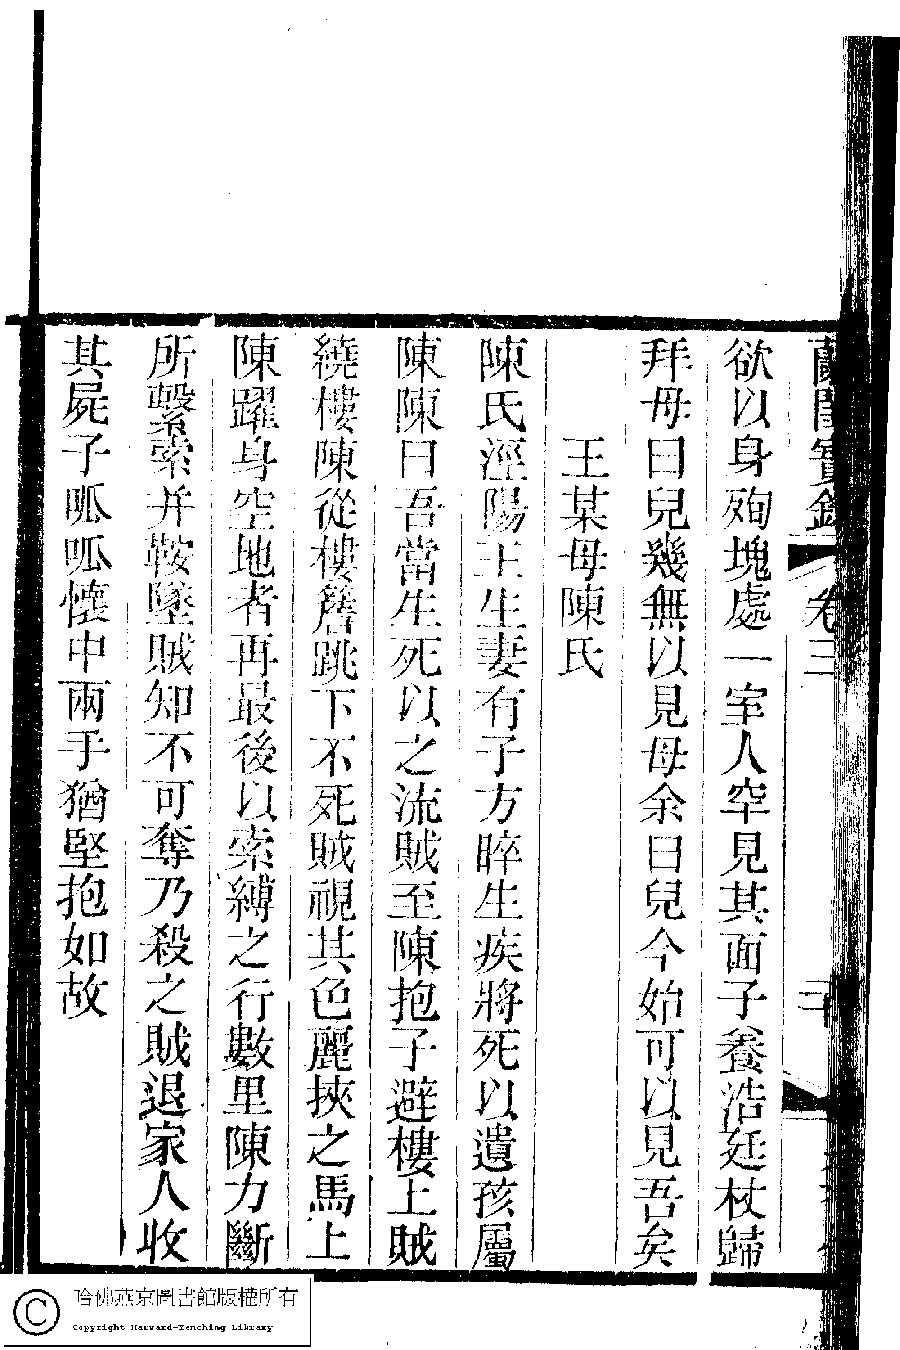 蘭閨寶錄 卷三
欲以身殉塊處一室人罕見其面子養浩廷杖歸
拜母曰兒幾無以見母余曰兒今始可以見吾矣
王某母陳氏
陳氏涇陽王生妻有子方晬生疾將死以遺孩屬
陳陳曰吾當生死以之流賊至陳抱子避樓上賊
繞樓陳從樓簷跳下不死賊視其色麗挾之馬上
陳躍身空地者再最後以索縛之行數里陳力斷
所繫索并鞍墜賊知不可奪乃殺之賊退家人收
其屍子呱呱懷中兩手猶堅抱如故
哈佛燕京圖書館版權所有
Copyright Harvard-Yenching Library